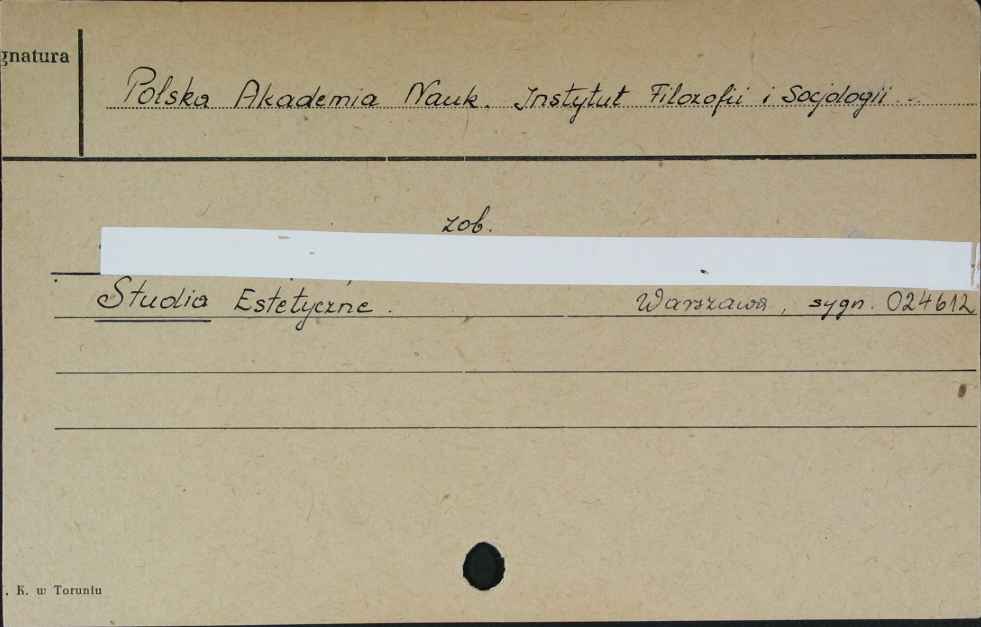 gnatura
Polska Akademia Nauk. Instytut Filozofii i Socjologii..
zob.
Studia Estetyczne. Warszawa, sygn. 024612
. K. w Toruniu